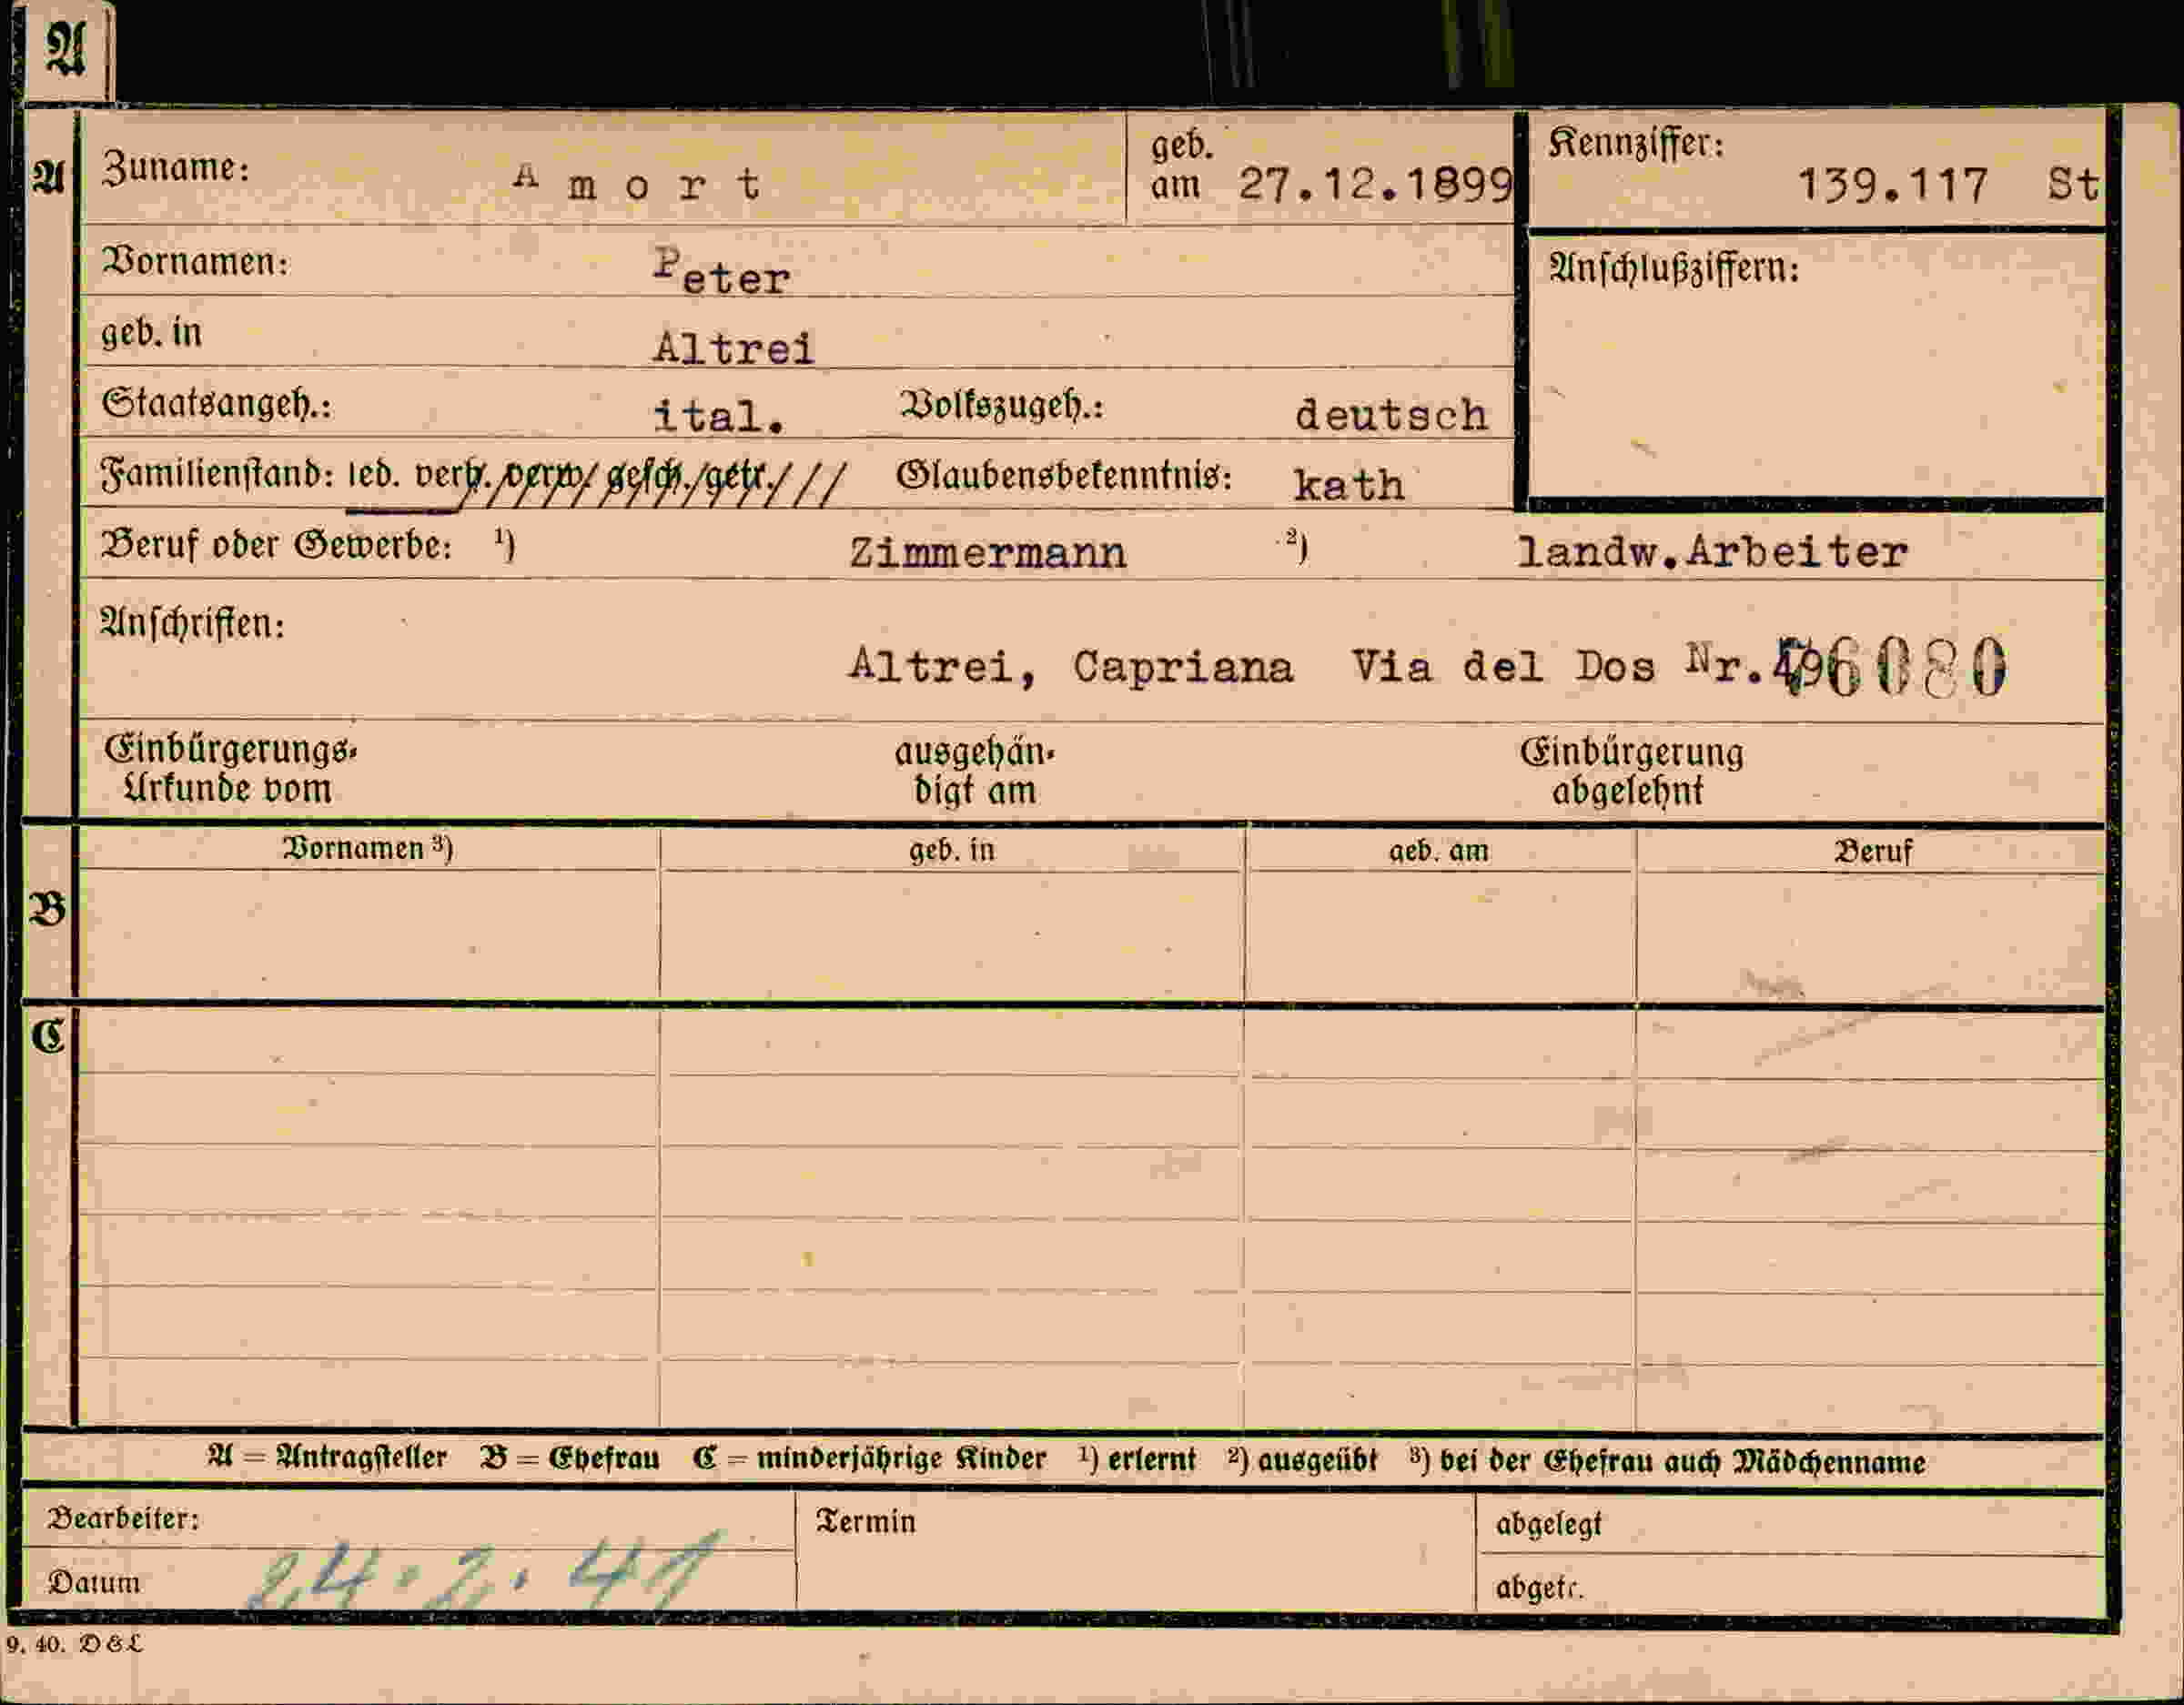 A
A Zuname: A m o r t geb. am 27.12.1899 Kennziffer: 139.117 St
Vornamen: Peter Anschlußziffern:
geb. in Altrei
Staatsangeh.: ital. Volkszugeh.: deutsch
Familienstand: led. verh. verw. gesch. getr. Glaubensbekenntnis: kath
Beruf oder Gewerbe: ¹) Zimmermann ²) landw.Arbeiter
Anschriften:
Altrei, Capriana Via del Dos Nr.
Einbürgerungs- ausgehän- Einbürgerung
Urkunde vom digt am abgelehnt
Vornamen ³) geb. in geb. am Beruf
B
C
A = Antragsteller B = Ehefrau C = minderjährige Kinder ¹) erlernt ²) ausgeübt ³) bei der Ehefrau auch Mädchenname
Bearbeiter: Termin abgelegt
Datum 24.2.41 abgetr.
9. 40. D&L